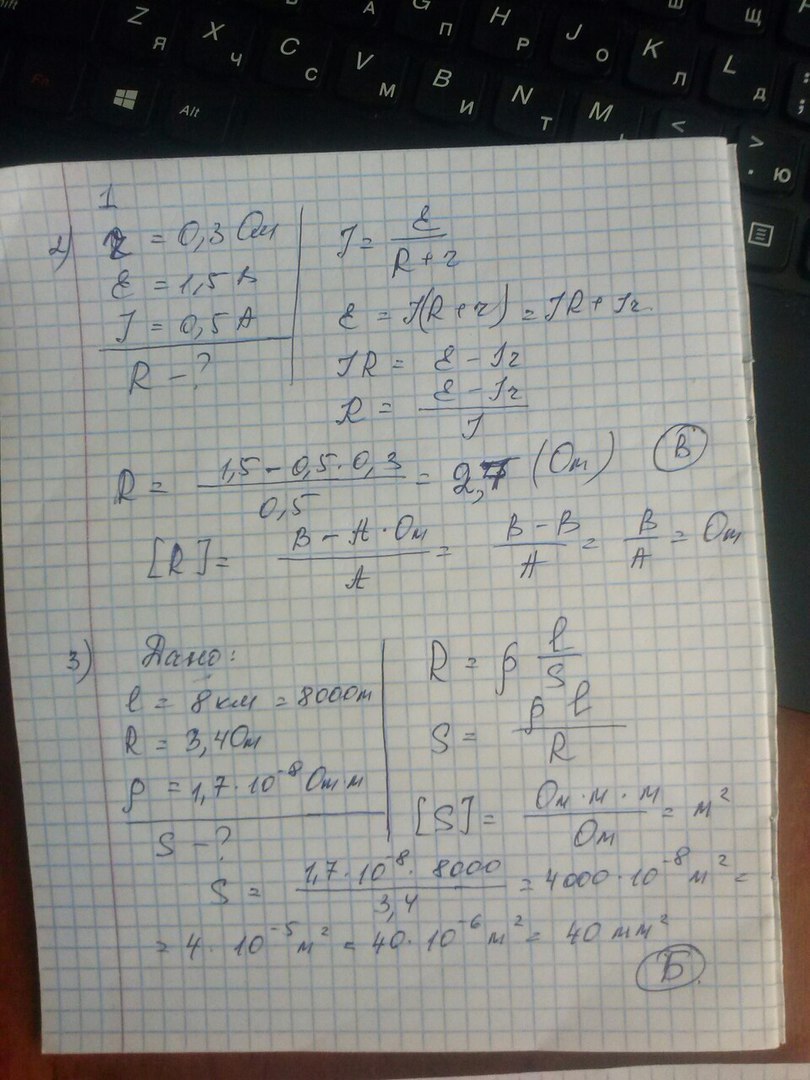 Z Я
X Ч
C С
V М
B И
N Т
M
K Л
L Д
J О
H Р
G П
А
Щ
<
> . Ю
Alt
1
2) r = 0,3 Ом
ε = 1,5 В
I = 0,5 А
R - ?
I = ε / (R + r)
ε = I(R + r) = IR + Ir
IR = ε - Ir
R = (ε - Ir) / I
R = (1,5 - 0,5 · 0,3) / 0,5 = 2,7 (Ом) В
[R] = (В - А · Ом) / А = (В - В) / А = В / А = Ом
3) Дано:
l = 8 км = 8000 м
R = 3,4 Ом
ρ = 1,7 · 10⁻⁸ Ом·м
S - ?
R = ρ l / S
S = ρ l / R
[S] = (Ом · м · м) / Ом = м²
S = (1,7 · 10⁻⁸ · 8000) / 3,4 = 4000 · 10⁻⁸ м² =
= 4 · 10⁻⁵ м² = 40 · 10⁻⁶ м² = 40 мм²
Б